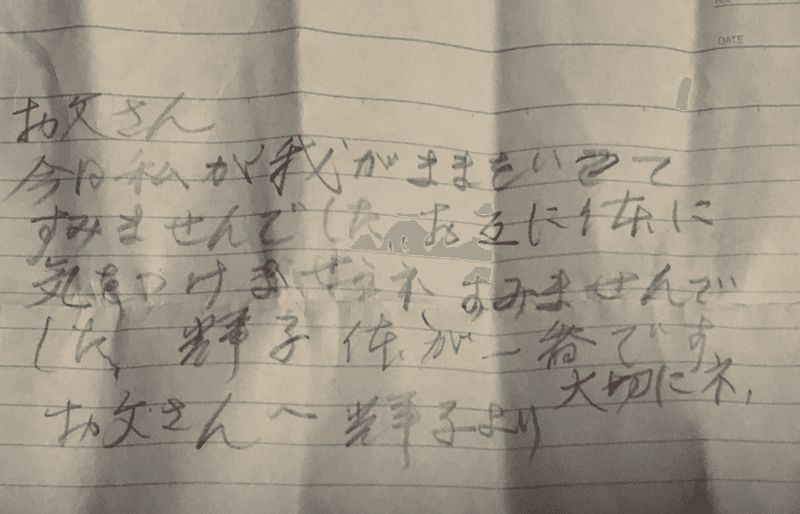 DATE
お父さん
今日私が我がままをいって
すみませんでした、お互に体に
気をつけませうネすみませんで
した、輝子体が一番です
大切にネ、
お父さんへ輝子より